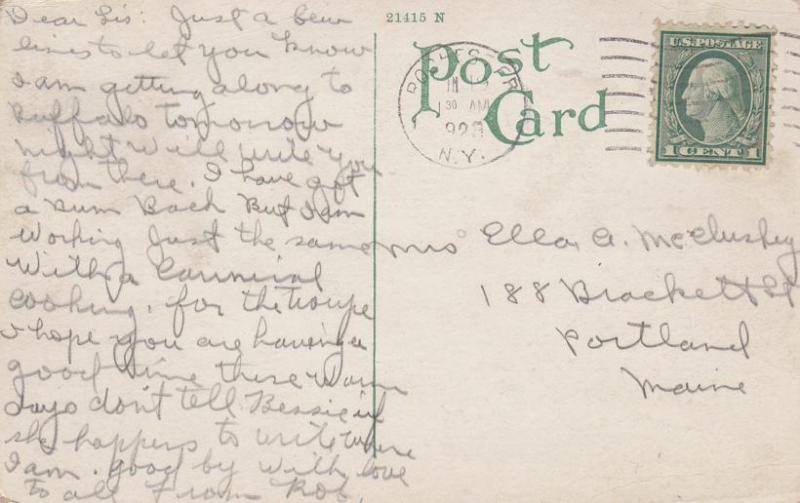 Dear Sis: Just a few
lines to let you know
I am getting along to
Buffalo tomorrow
night will write you
from there. I have got
a Bum Back But I am
working Just the same
with a Carnival
cooking. for the troupe
I hope you are having a
good time these warm
days dont tell Bessie if
she happens to write where
I am. good by with love
to all From Rob.
21415 N
Post
Card
ROCHESTER
30 AM
192
N.Y.
U.S. POSTAGE
1 CENT 1
Mrs Ella A. McCluskey
188 Brackett St
Portland
Maine